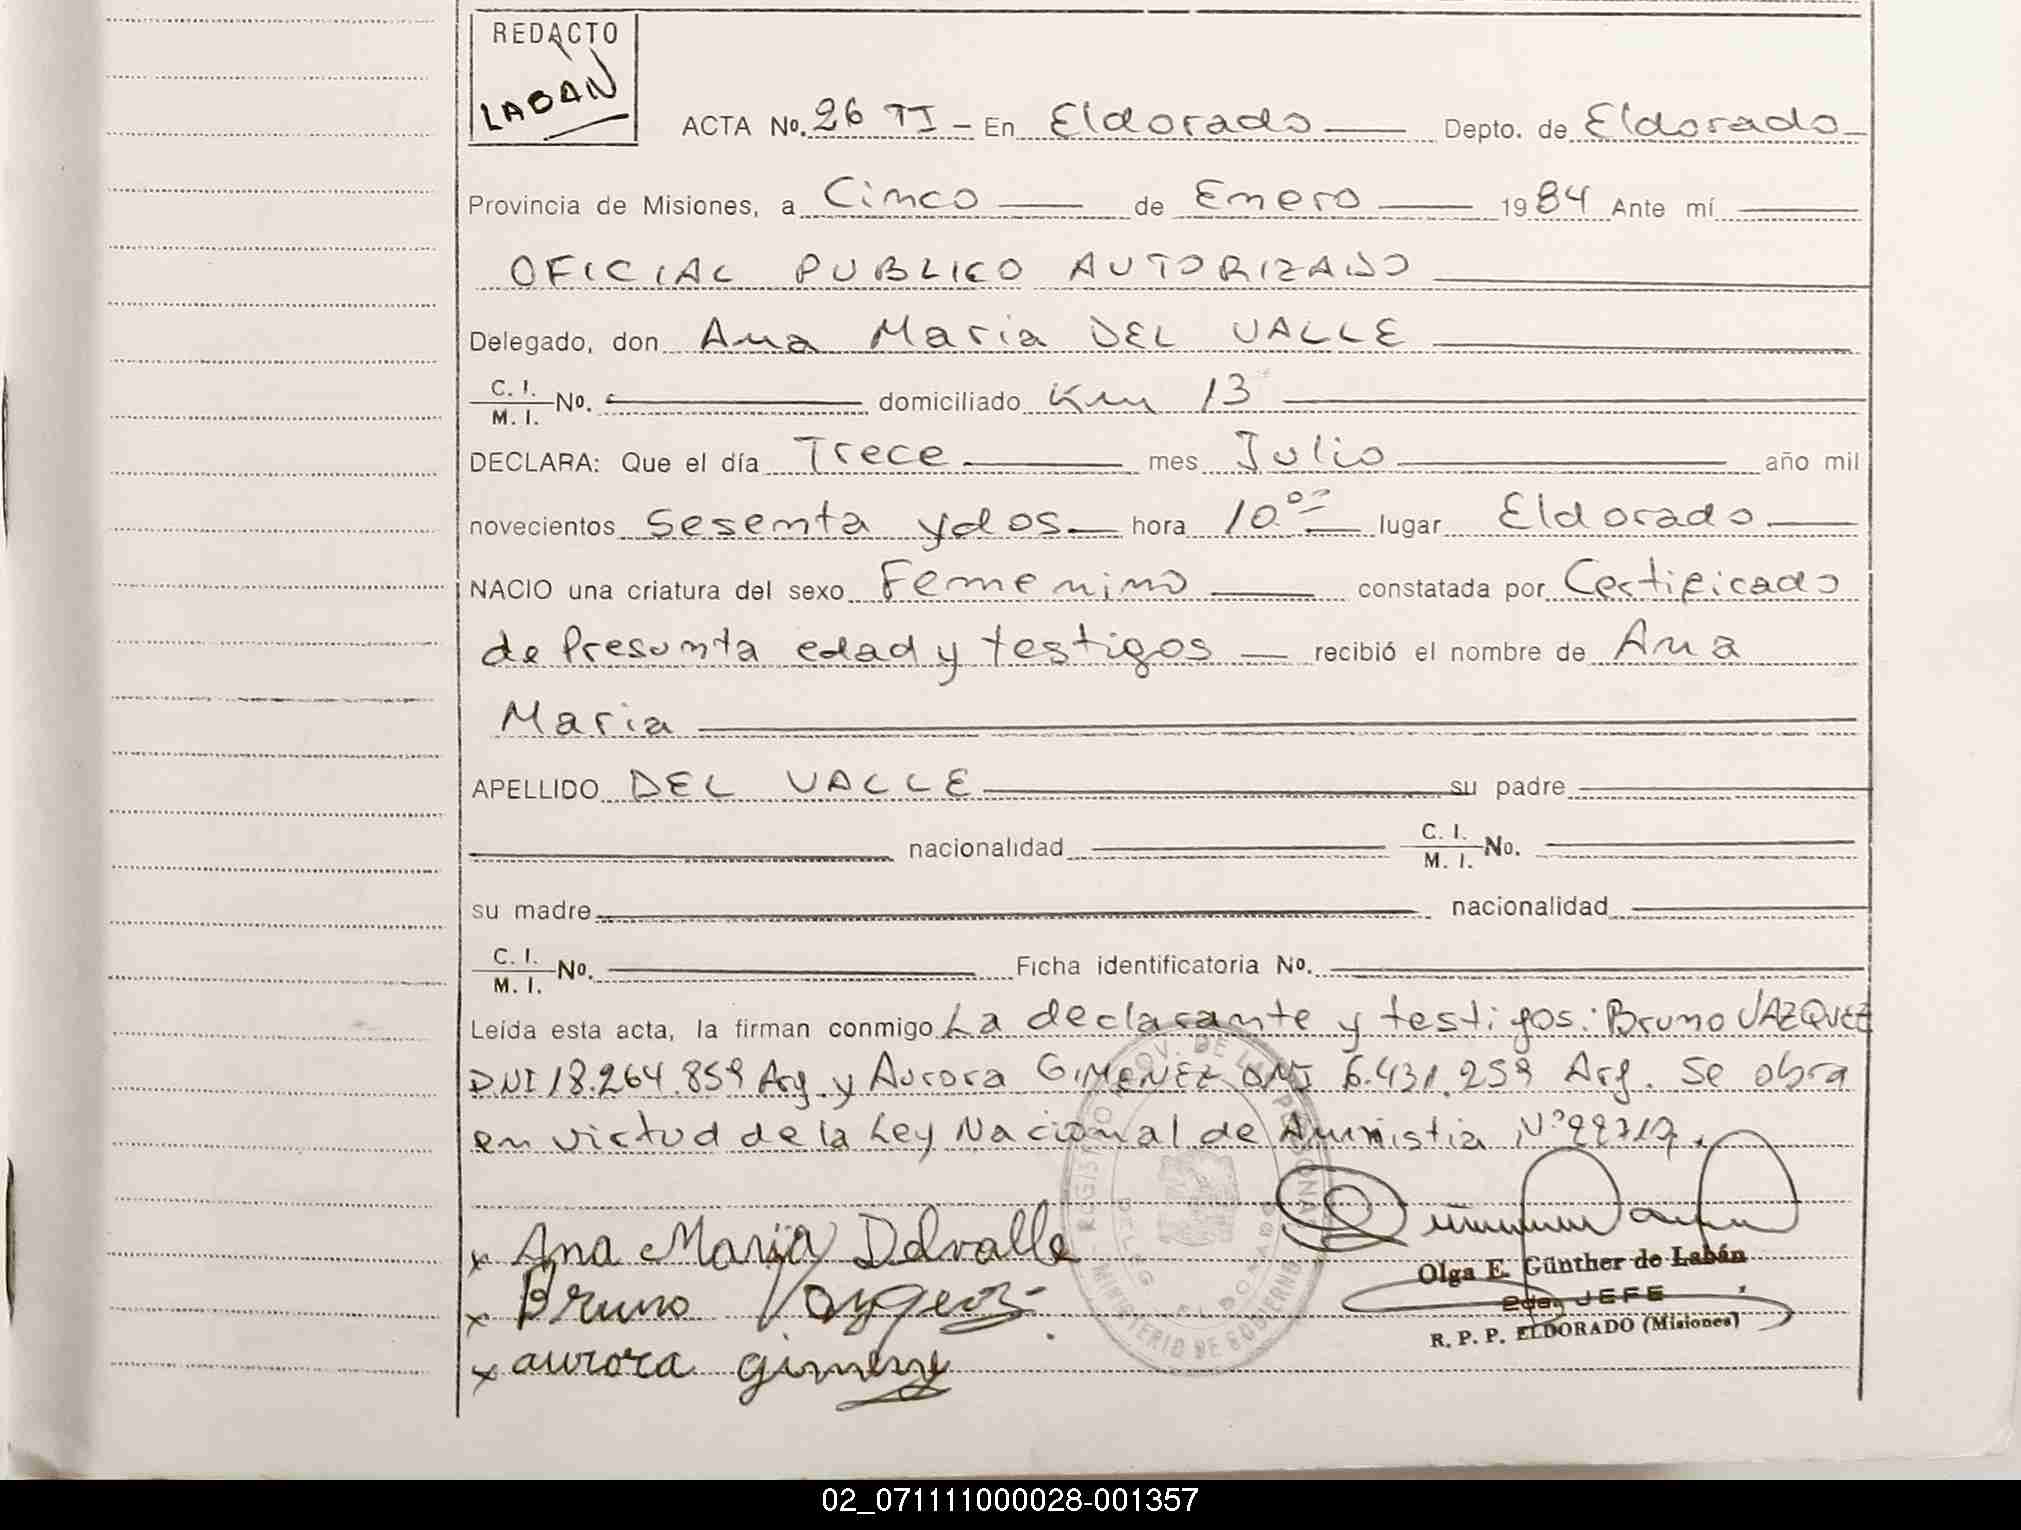 REDACTO
LABAN
ACTA No. 26 TI - En Eldorado Depto. de Eldorado
Provincia de Misiones, a Cinco de Enero 1984 Ante mí
OFICIAL PUBLICO AUTORIZADO
Delegado, don Ana Maria DEL VALLE
C. I. / M. I. No. domiciliado Km 13
DECLARA: Que el día Trece mes Julio año mil
novecientos sesenta y dos hora 10.00 lugar Eldorado
NACIO una criatura del sexo Femenino constatada por Certificado
de Presunta edad y testigos recibió el nombre de Ana
Maria
APELLIDO DEL VALLE su padre
nacionalidad C. I. / M. I. No.
su madre nacionalidad
C. I. / M. I. No. Ficha identificatoria No.
Leída esta acta, la firman conmigo La declarante y testigos: Bruno VAZQUEZ
DNI 18.264.859 Arg. y Aurora GIMENEZ DNI 6.431.259 Arg. Se obra
en virtud de la Ley Nacional de Amnistia N° 22717.
x Ana Maria Delvalle
x Bruno Vazquez
x aurora gimenez
REGISTRO PROV. DE LAS PERSONAS
MINISTERIO DE GOBIERNO
DELEG. ELDORADO
Olga E. Günther de Labán
2da. JEFE
R. P. P. ELDORADO (Misiones)
02_071111000028-001357